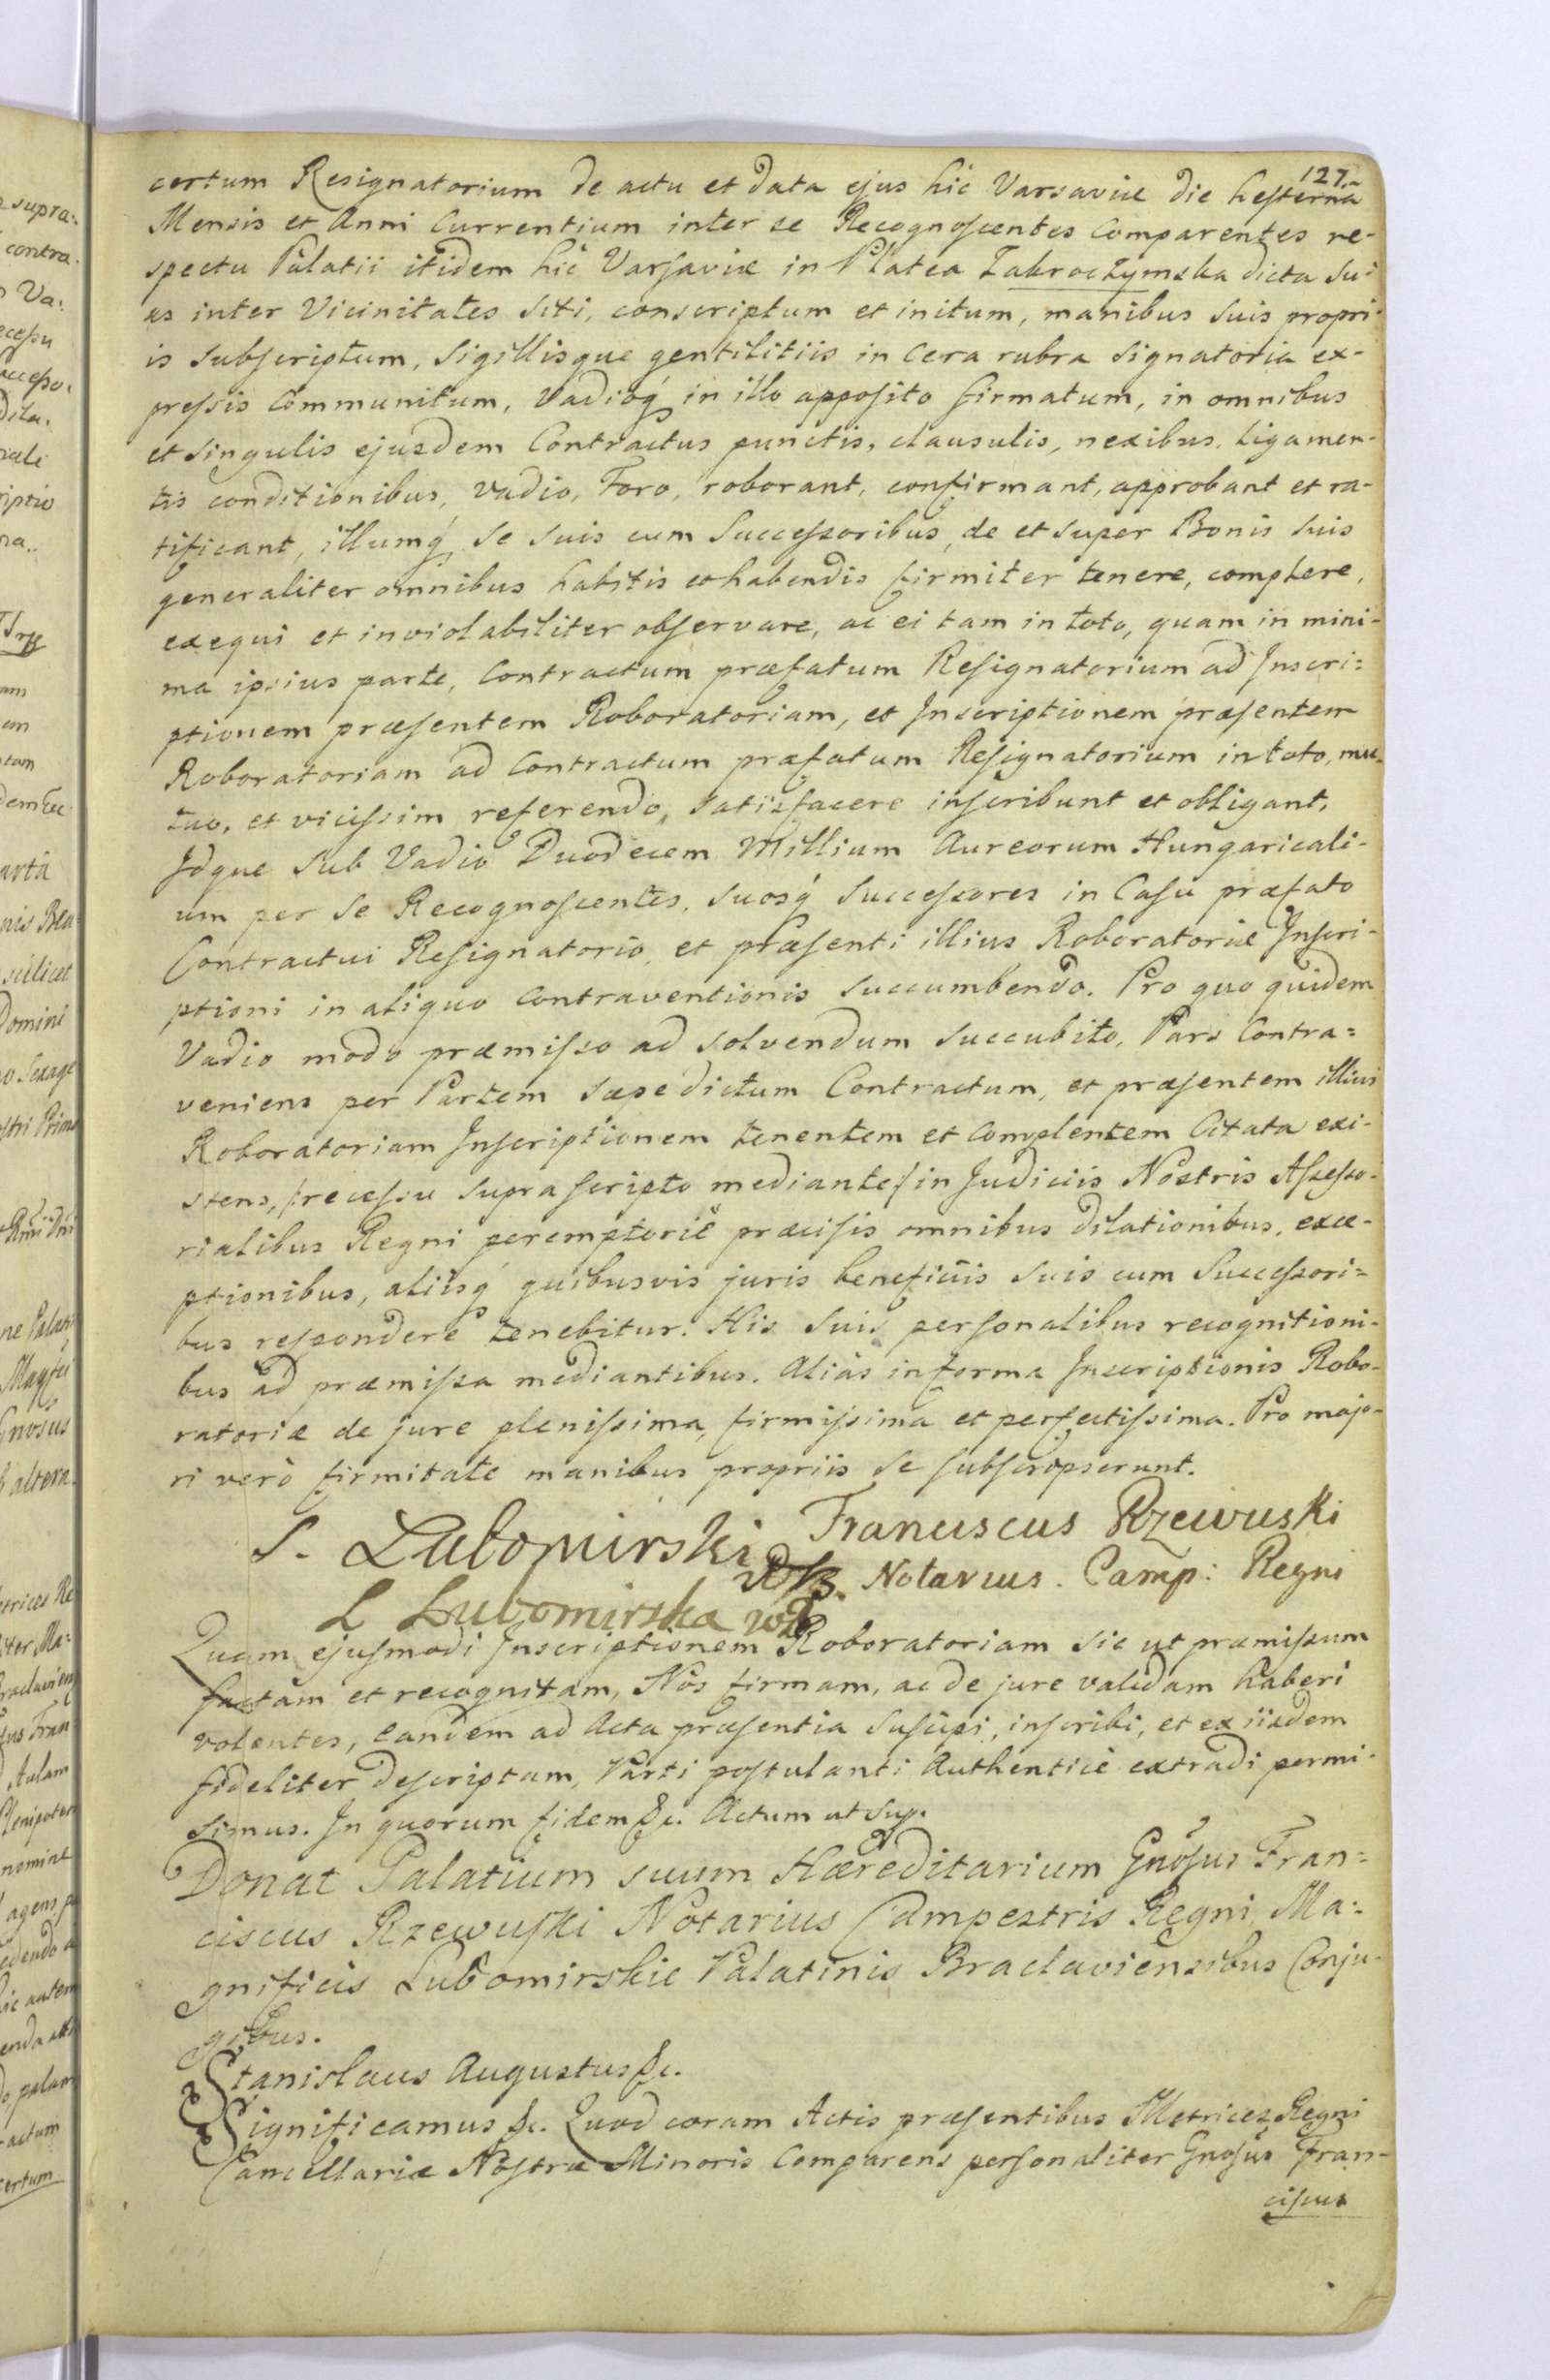 127.
certum Resignatorium de actu et data ejus hic Varsaviæ die hesterna
Mensis et Anni Currentium inter se Recognoscentes Comparentes re-
spectu Palatii itidem hic Varsaviæ in Platea Zakroczymska dicta Su-
as inter Vicinitates siti, conscriptum et initum, manibus suis propri-
is subscriptum, sigillisque gentilitiis in cera rubra signatoria ex-
pressis Communitum, Vadioq́ in illo apposito firmatum, in omnibus
et singulis ejusdem Contractus punctis, clausulis, nexibus, ligamen-
tis conditionibus, vadio, Foro, roborant, confirmant, approbant et ra-
tificant, illumq́ se suis cum Successoribus, de et super Bonis suis
generaliter omnibus habitis et habendis firmiter tenere, complere,
exequi et inviolabiliter observare, ac ei tam in toto, quam in mini-
ma ipsius parte, Contractum præfatum Resignatorium ad Inscri=
ptionem præsentem Roboratoriam, et Inscriptionem præsentem
Roboratoriam ad Contractum præfatum Resignatorium in toto, mu-
tuo, et vicissim referendo, satisfacere inscribunt et obligant,
Idque sub Vadio Duodecem Millium Aureorum Hungaricali-
um per se Recognoscentes, suosq́ Successores in Casu præfato
Contractui Resignatorio, et præsenti illius Roboratoriæ Inscri-
ptioni in aliquo contraventionis succumbendo. Pro quo quidem
Vadio modo præmisso ad solvendum succubito, Pars Contra=
veniens per Partem sæpedictum Contractum, et præsentem illius
Roboratoriam Inscriptionem tenentem et complentem Citata exi-
stens, /:recessu suprascripto mediante/ in Judiciis Nostris Assesso-
rialibus Regni peremptoriè præcisis omnibus dilationibus, exce-
ptionibus, aliisq́ quibusvis juris beneficiis suis cum Successori=
bus respondere tenebitur. His suis personalibus recognitioni-
bus ad præmissa mediantibus. Aliàs in forma Inscriptionis Robo-
ratoriæ de jure plenissima, firmissima et perfectissima. Pro majo-
ri verò firmitate manibus propriis se subscripserunt.
S. Lubomirski Franciscus Rzewuski
Notarius. Camp: Regni
L Lubomirska
Quam ejusmodi Inscriptionem Roboratoriam sic ut præmissum
factam et recognitam, Nos firmam, ac de jure validam haberi
volentes, eandem ad Acta præsentia suscipi, inscribi, et ex iisdem
fideliter descriptam, Parti postulanti Authenticè extradi permi-
simus. In quorum fidem &c. Actum ut sup.
Donat Palatium suum Hæreditarium Gnosus Fran=
ciscus Rzewuski Notarius Campestris Regni, Ma:
gnificis Lubomirskie Palatinis Braclaviensibus Conju-
gibus.
Stanislaus Augustus &c.
Significamus &c. Quod coram Actis præsentibus Metrices Regni
Cancellariæ Nostræ Minoris Comparens personaliter Gnosus Fran-
ciscus